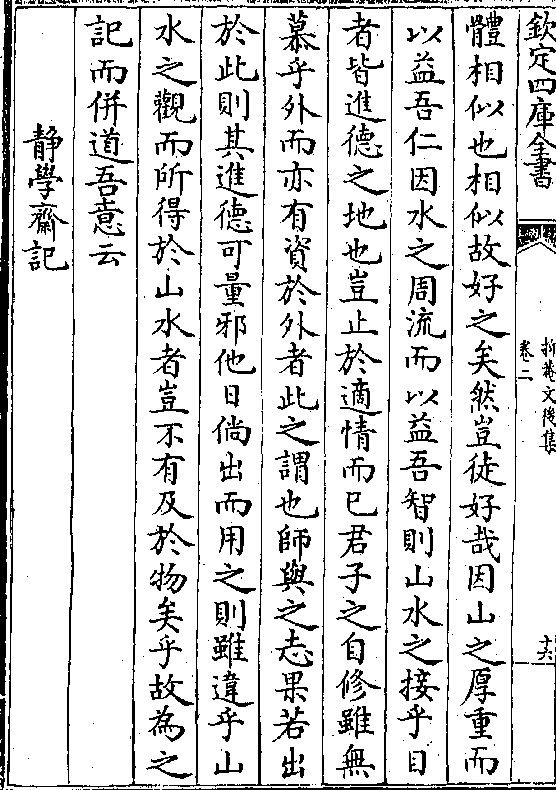 欽定四庫全書
抑菴文後集
卷二
十六
體相似也相似故好之矣然豈徒好哉因山之厚重而
以益吾仁因水之周流而以益吾智則山水之接乎目
者皆進德之地也豈止於適情而已君子之自修雖無
慕乎外而亦有資於外者此之謂也師與之志果若出
於此則其進德可量邪他日倘出而用之則雖違乎山
水之觀而所得於山水者豈不有及於物矣乎故為之
記而併道吾意云
靜學齋記